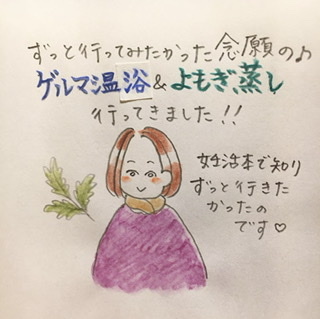 ずっと行ってみたかった念願の♪
ゲルマ温浴&よもぎ蒸し
行ってきました!!
妊活本で知り
ずっと行きた
かったの
です♡